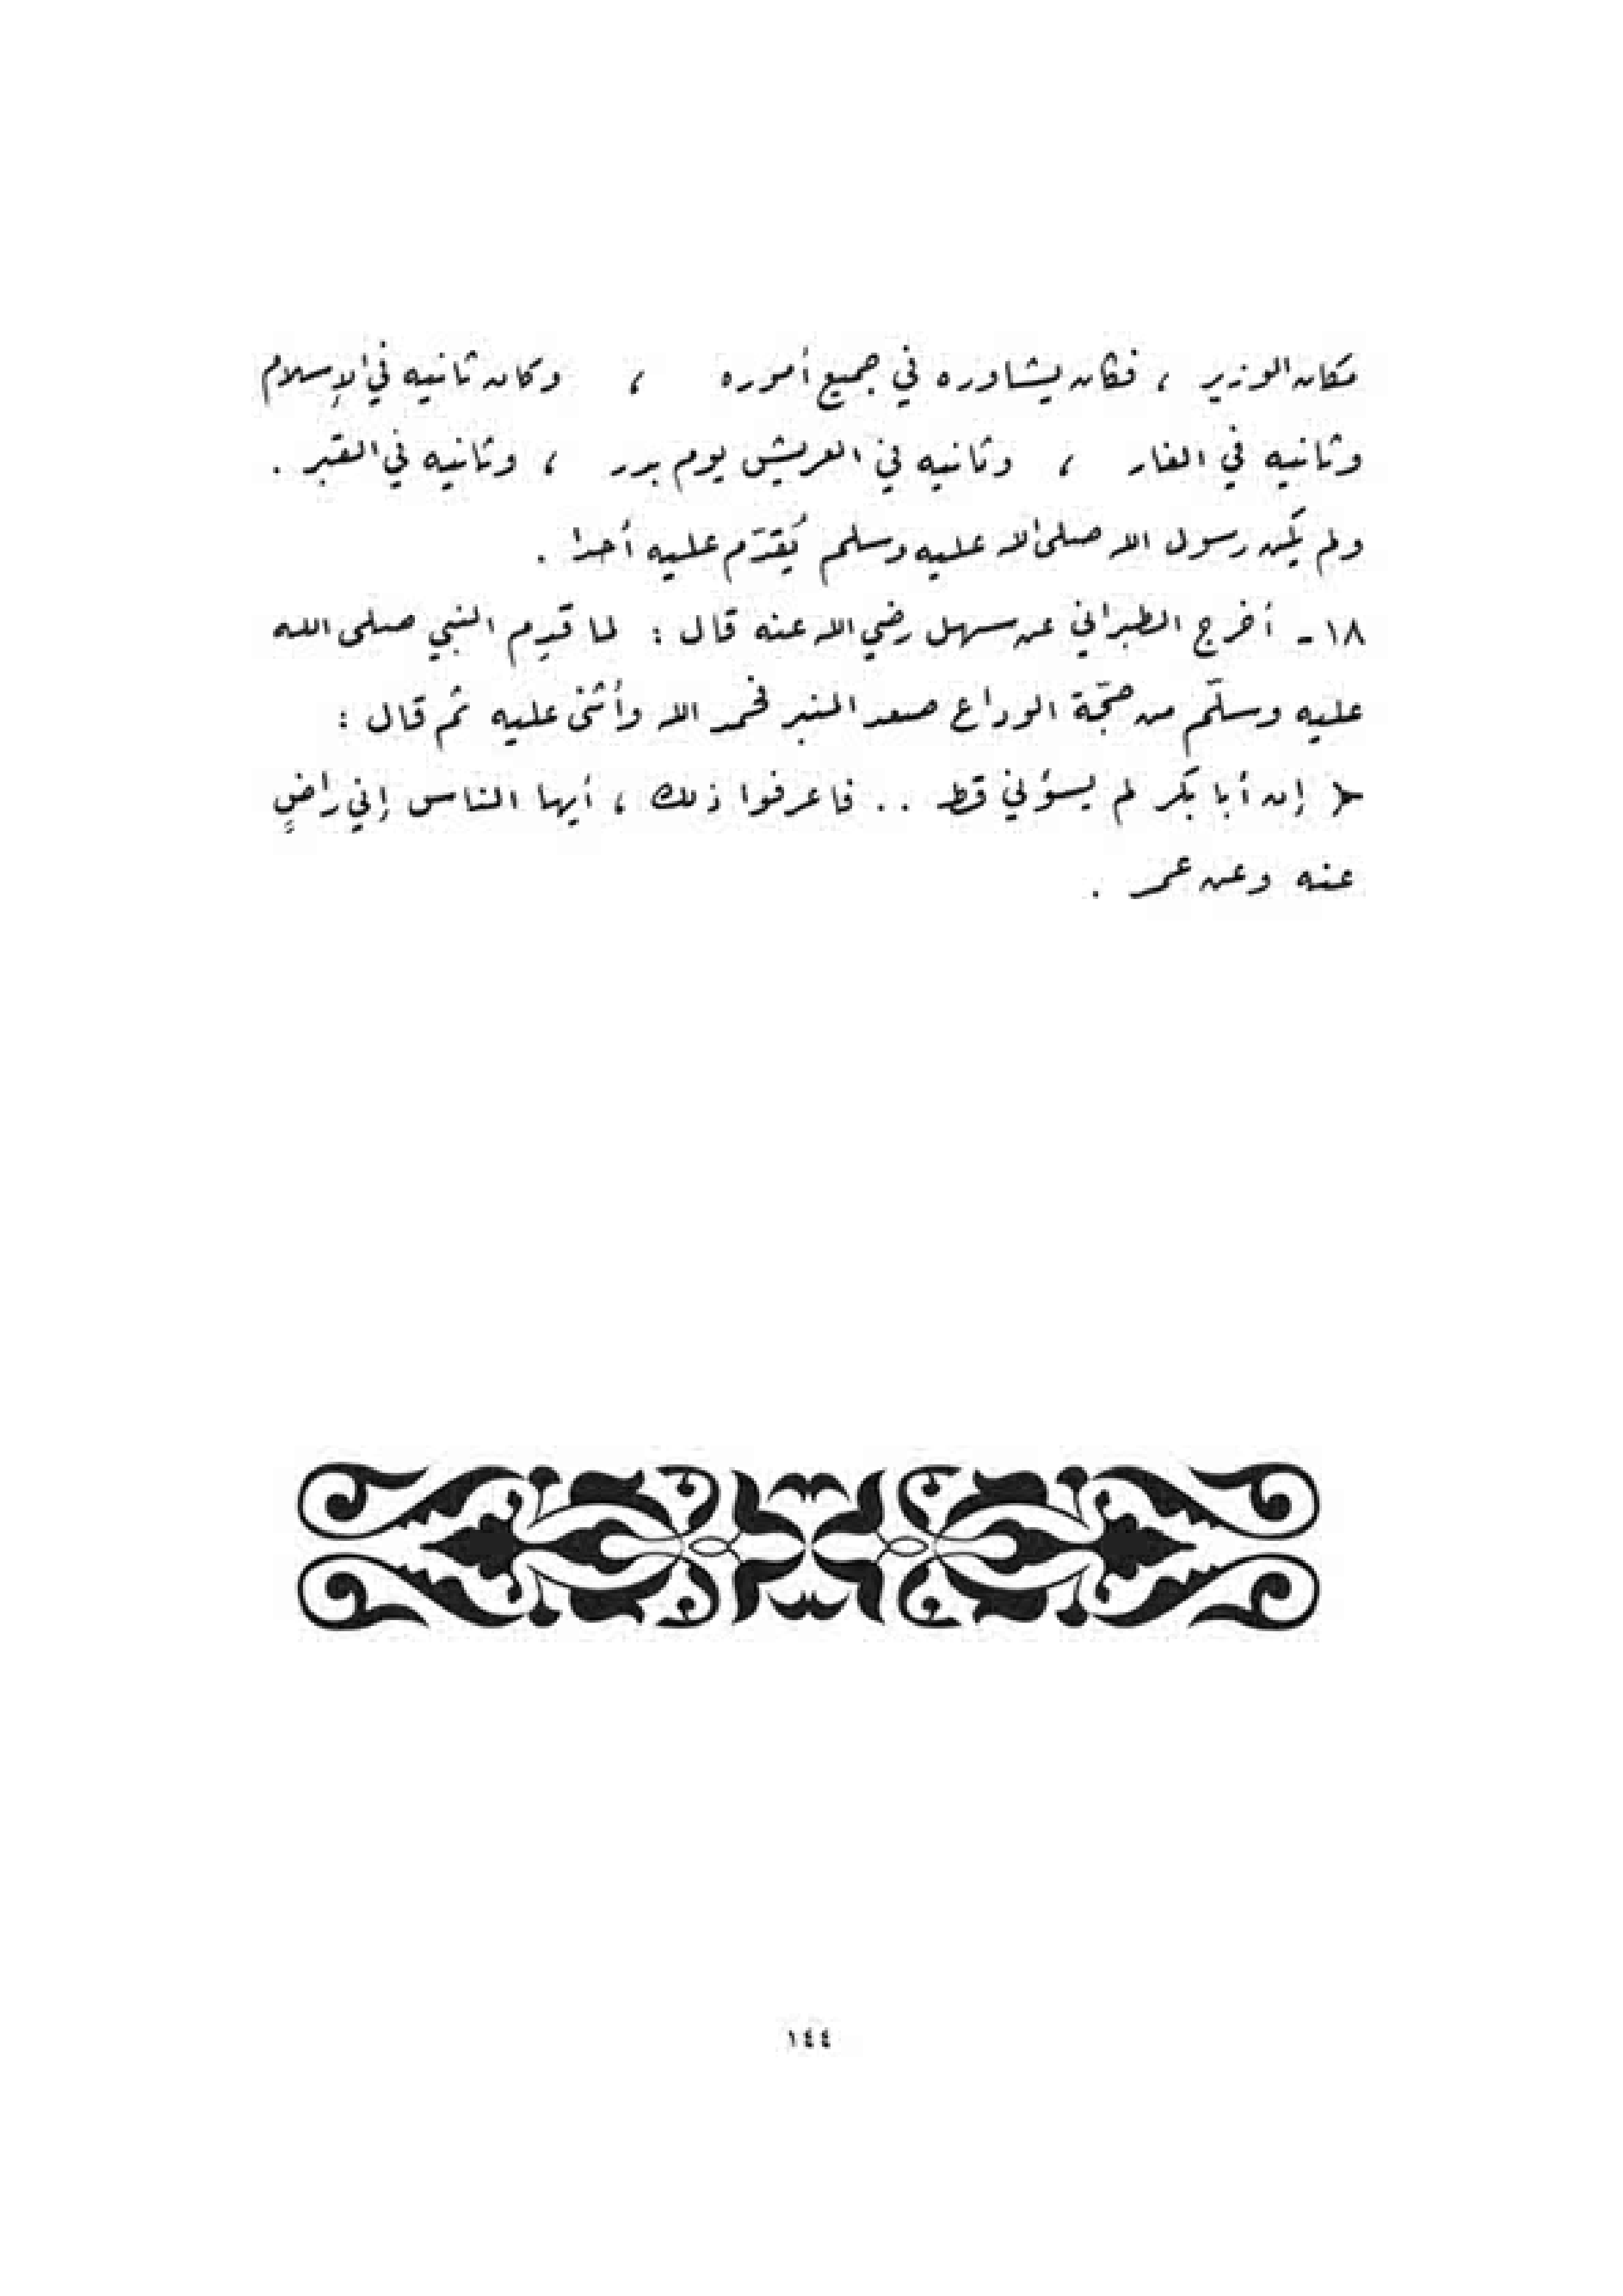 مكان الوزير ، فكان يشاوره في جميع أموره ، وكان ثانيه في الإسلام
وثانيه في الغار ، وثانيه في العريش يوم بدر ، وثانيه في القبر .
ولم يكن رسول الله صلى الله عليه وسلم يُقدّم عليه أحدا .
١٨ - أخرج الطبراني عن سهل رضي الله عنه قال : لما قدِم النبي صلى الله
عليه وسلّم من حجّة الوداع صعد المنبر فحمد الله وأثنى عليه ثم قال :
< إن أبا بكر لم يسؤني قط .. فاعرفوا ذلك ، أيها الناس إني راضٍ
عنه وعن عمر .
١٤٤